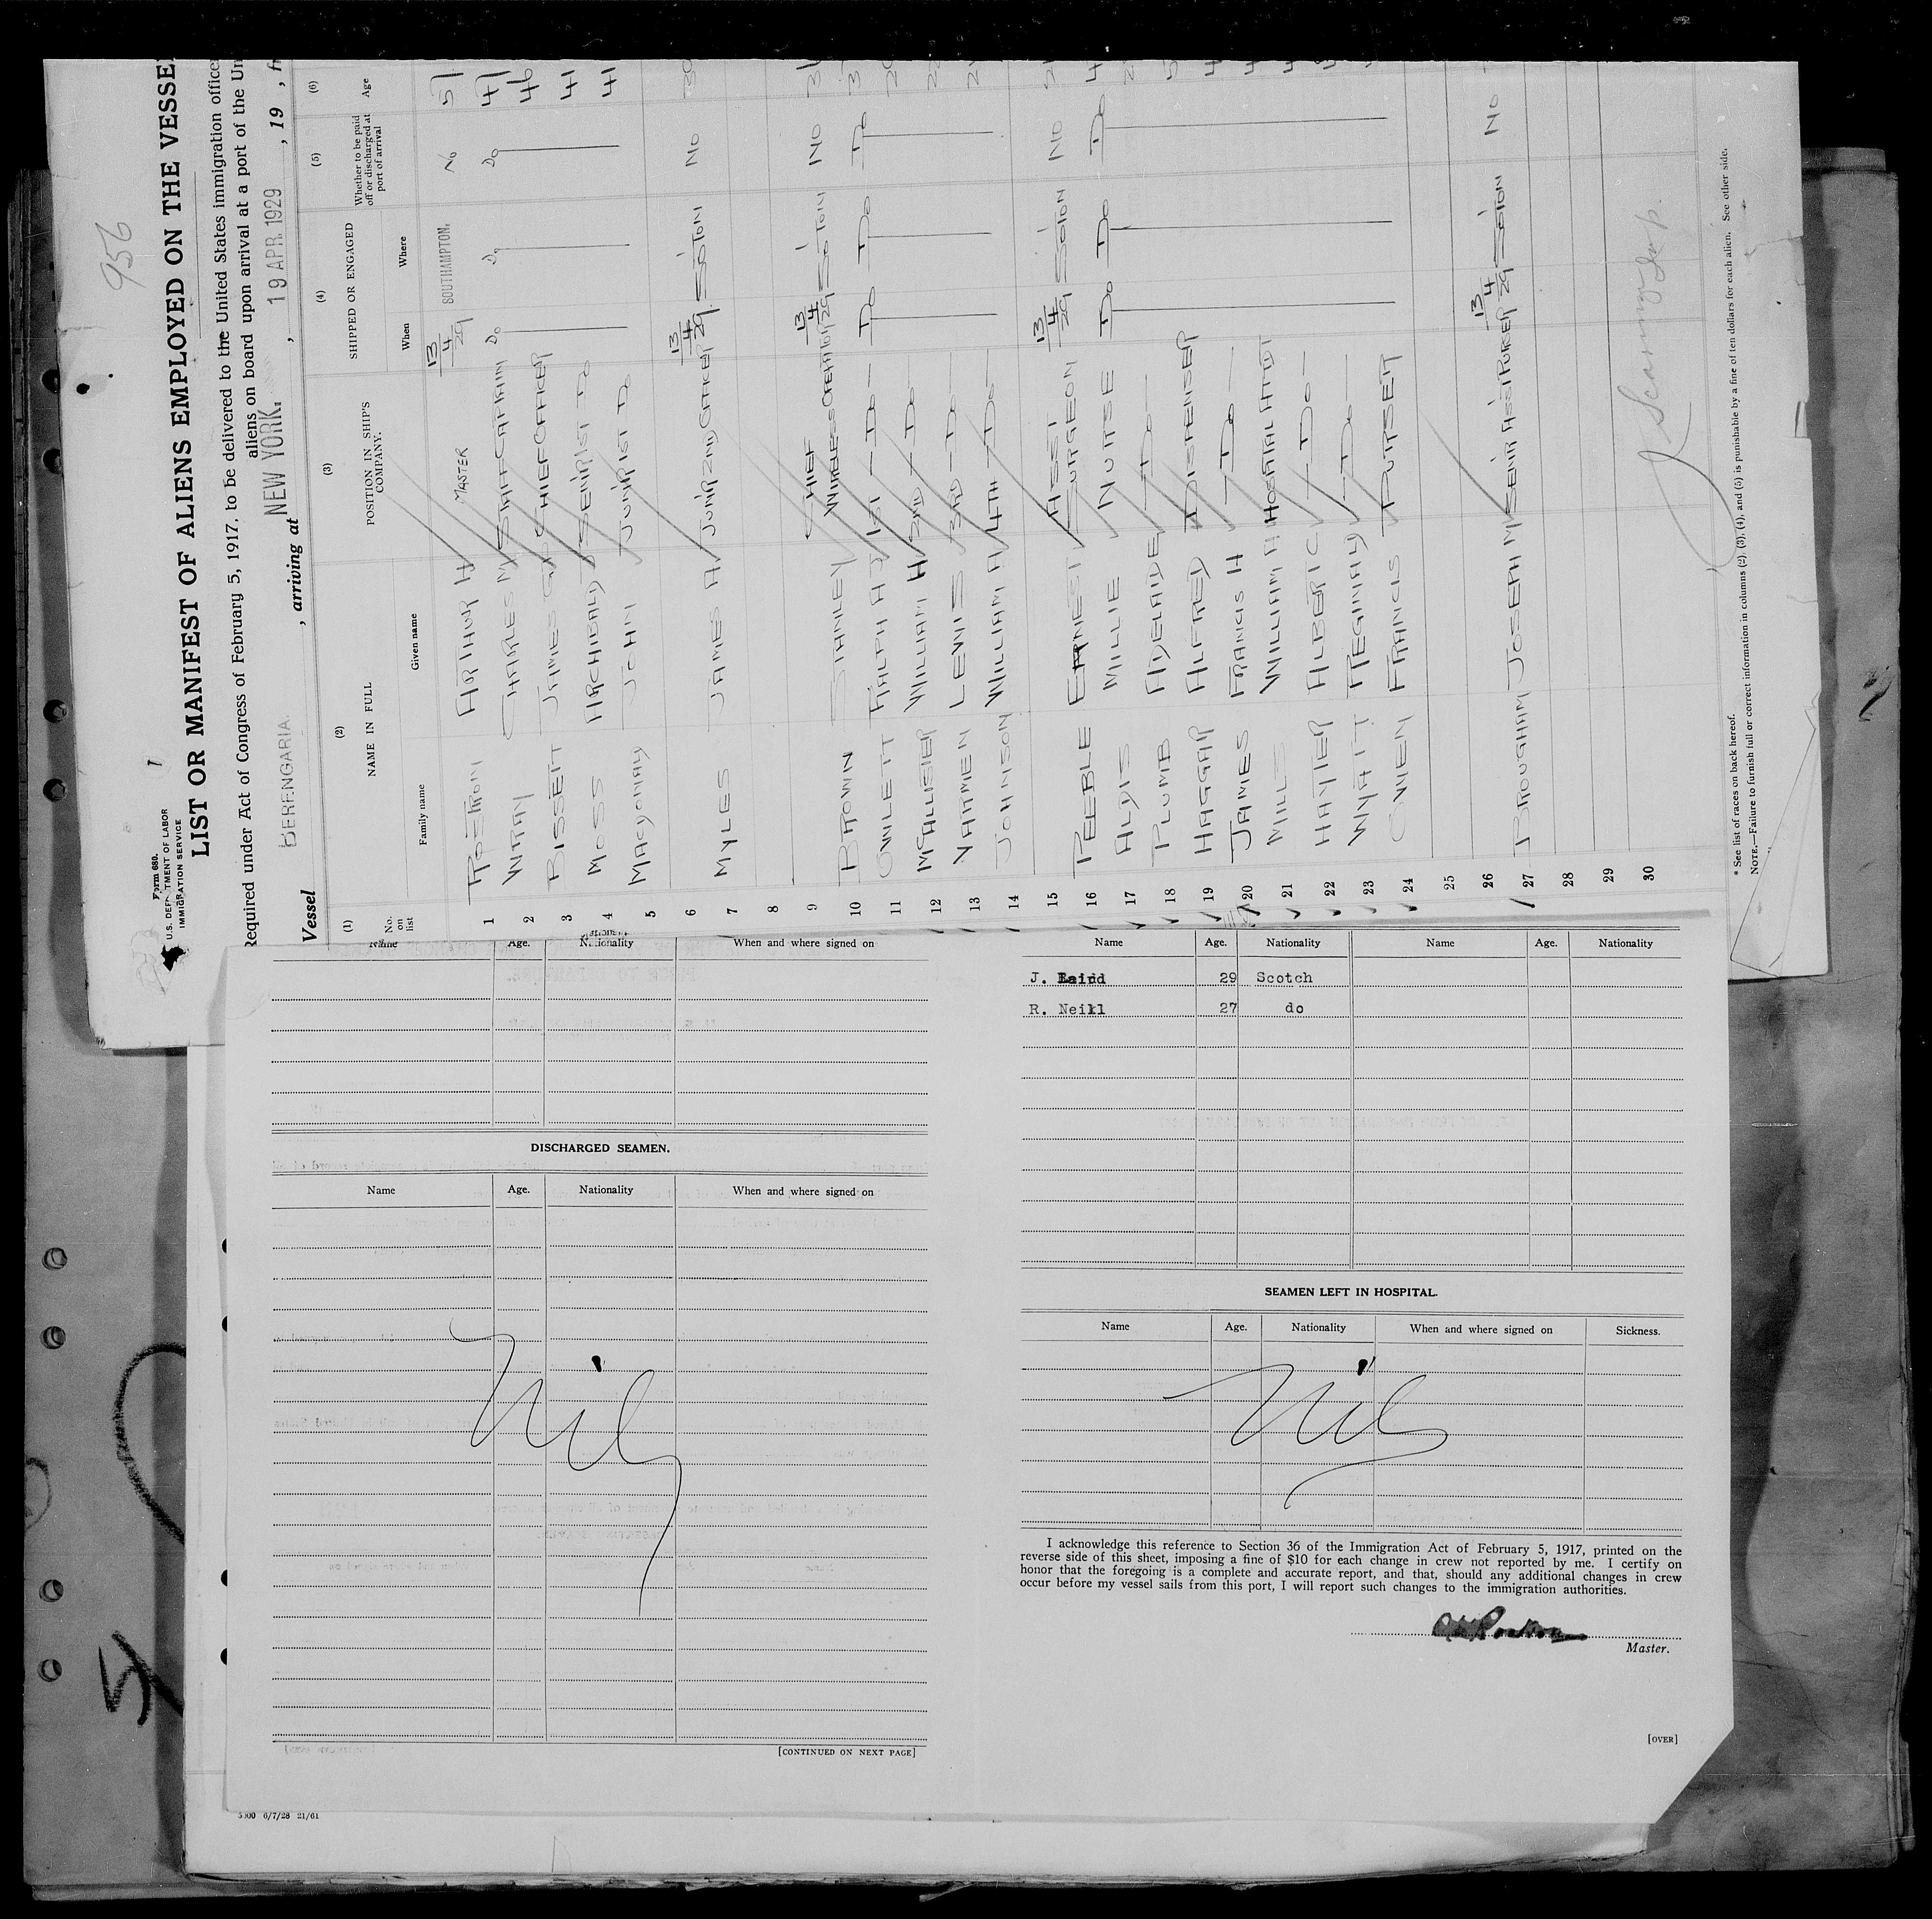 956
Form 680.
U.S. DEPARTMENT OF LABOR
IMMIGRATION SERVICE
LIST OR MANIFEST OF ALIENS EMPLOYED ON THE VESSEL
Required under Act of Congress of February 5, 1917, to be delivered to the United States immigration officer
aliens on board upon arrival at a port of the Un
Vessel BERENGARIA. , arriving at NEW YORK. , 19 APR 1929 , 19 , fr
(1) (2) (3) (4) (5) (6)
No. on list NAME IN FULL POSITION IN SHIP'S COMPANY. SHIPPED OR ENGAGED Whether to be paid off or discharged at port of arrival Age
Family name Given name When Where
1 ROSTRON ARTHUR H MASTER 13/4/29 SOUTHAMPTON. No 57
2 WRAY CHARLES M STAFF CAPTAIN Do Do Do 47
3 BISSETT JAMES G P CHIEF OFFICER 46
4 MOSS ARCHIBALD J SENR 1ST Do 41
5 MACDONALD JOHN JUNR 1ST Do 41
6
7 MYLES JAMES A JUNR 2ND OFFICER 13/4/29 S'OTON NO
8
9
10 BROWN STANLEY CHIEF WIRELESS OPERATOR 13/4/29 S'OTON NO
11 OWLETT RALPH A J 1ST Do Do Do Do
12 McALLISTER WILLIAM H 2ND Do
13 VARMEN LEWIS 3RD Do
14 JOHNSON WILLIAM A 4TH Do
15
16 PEEBLE ERNEST ASST SURGEON 13/4/29 S'OTON NO
17 ALDIS MILLIE NURSE Do Do Do
18 PLUMB ADELAIDE Do
19 HAGGAR ALFRED DISPENSER
20 JAMES FRANCIS H Do
21 MILLS WILLIAM H HOSPITAL ATTDT
22 HAYTER ALBERIC Do
23 WYATT REGINALD Do
24 OWEN FRANCIS PURSER
25
26
27 BROUGHAM JOSEPH M SENR ASST PURSER 13/4/29 S'OTON NO
28
29
30
* See list of races on back hereof.
NOTE.—Failure to furnish full or correct information in columns (2), (3), (4), and (5) is punishable by a fine of ten dollars for each alien. See other side.
Name Age. Nationality When and where signed on
DISCHARGED SEAMEN.
Name Age. Nationality When and where signed on
Nil
[CONTINUED ON NEXT PAGE]
3000 6/7/28 21/61
Name Age. Nationality Name Age. Nationality
J. Baird 29 Scotch
R. Neill 27 do
SEAMEN LEFT IN HOSPITAL.
Name Age. Nationality When and where signed on Sickness.
Nil
I acknowledge this reference to Section 36 of the Immigration Act of February 5, 1917, printed on the
reverse side of this sheet, imposing a fine of $10 for each change in crew not reported by me. I certify on
honor that the foregoing is a complete and accurate report, and that, should any additional changes in crew
occur before my vessel sails from this port, I will report such changes to the immigration authorities.
A H Rostron
Master.
[OVER]